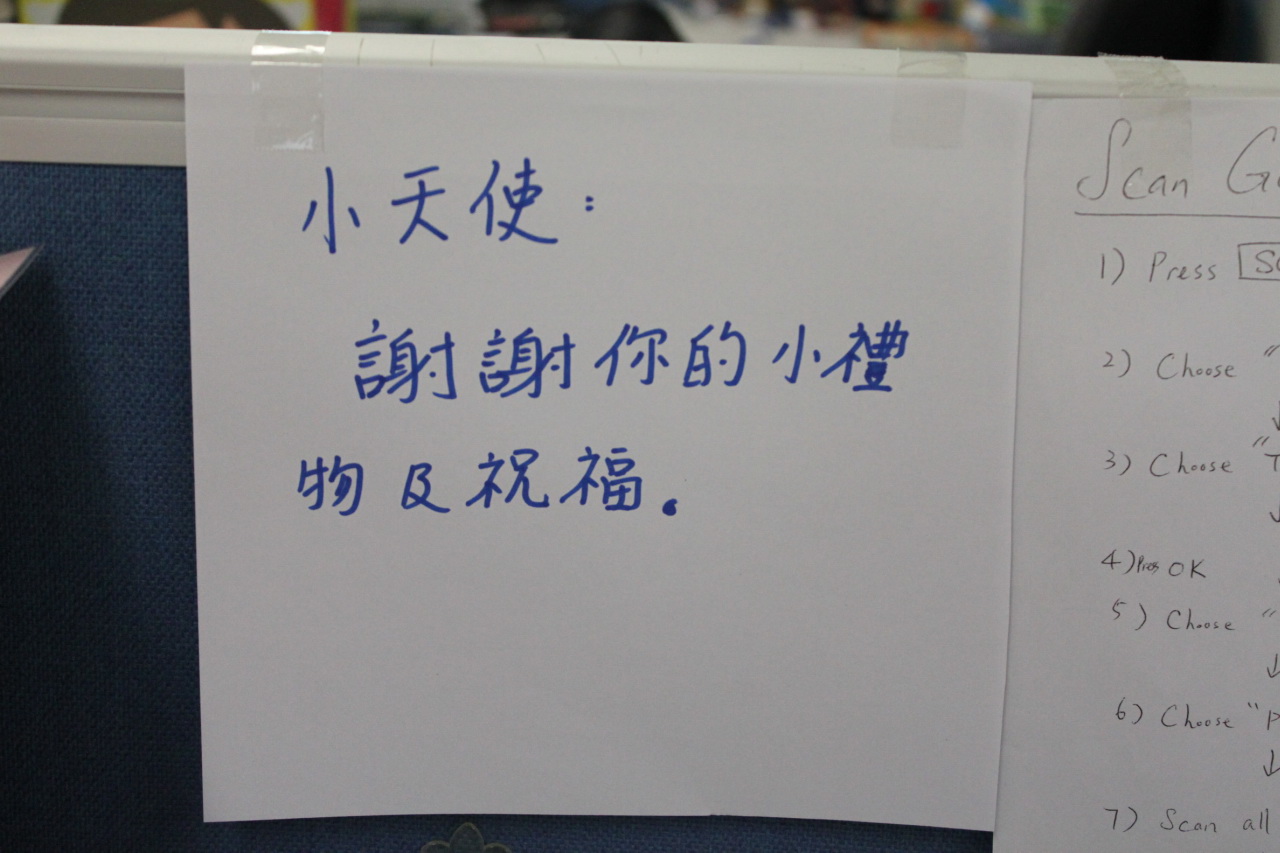 小天使：
謝謝你的小禮
物及祝福。
Scan
1) Press
2) Choose "
3) Choose "T
4) Press OK
5) Choose "
6) Choose "P
7) Scan all